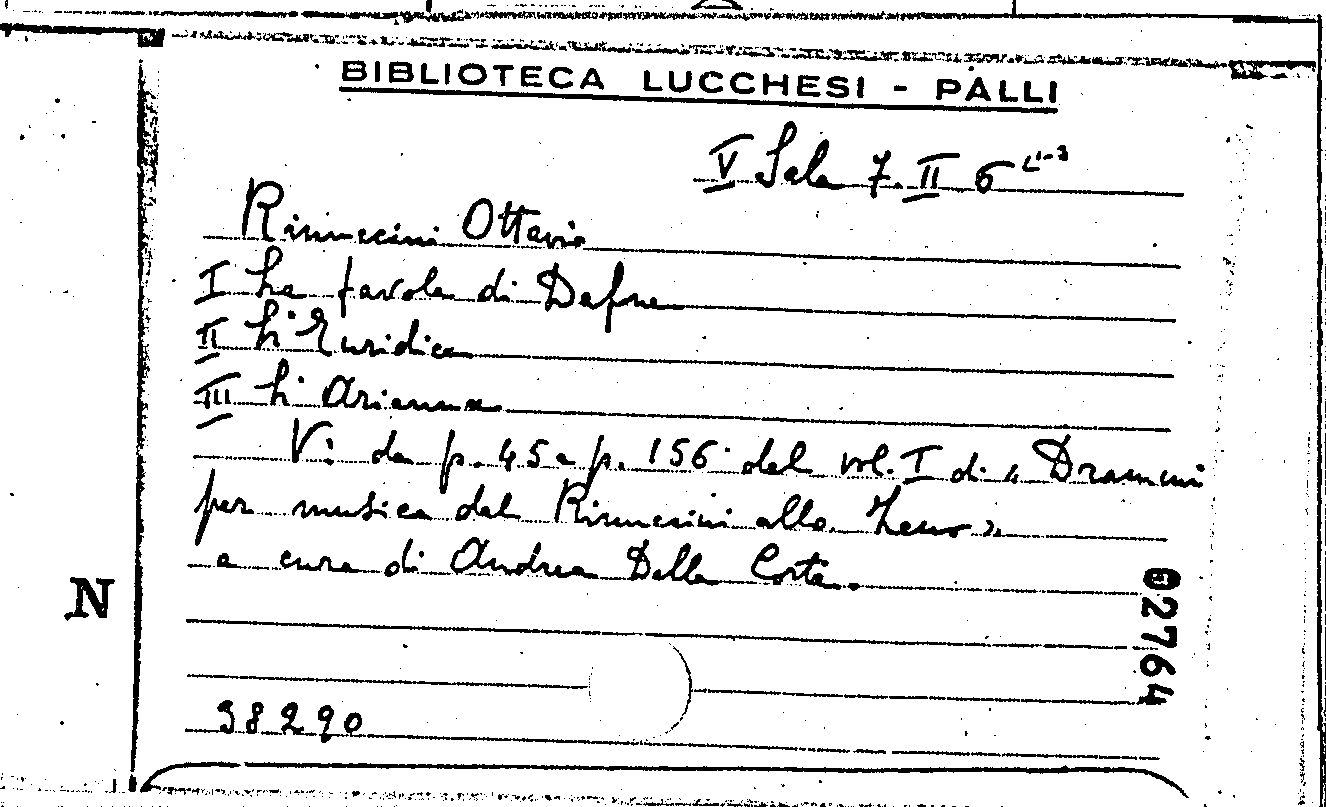 BIBLIOTECA LUCCHESI - PALLI
V Sala 7. II 6
Rinuccini Ottavio
I La favola di Dafne
II L'Euridice
III L'Arianna
V: da p. 45 a p. 156 del vol. I di « Drammi
per musica dal Rinuccini allo Zeno »
a cura di Andrea Della Corte.
N
02764
38290